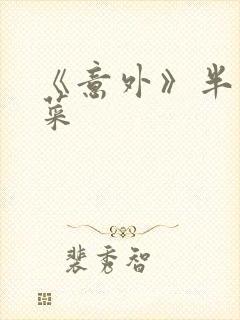 《意外》半
菜
裴秀智